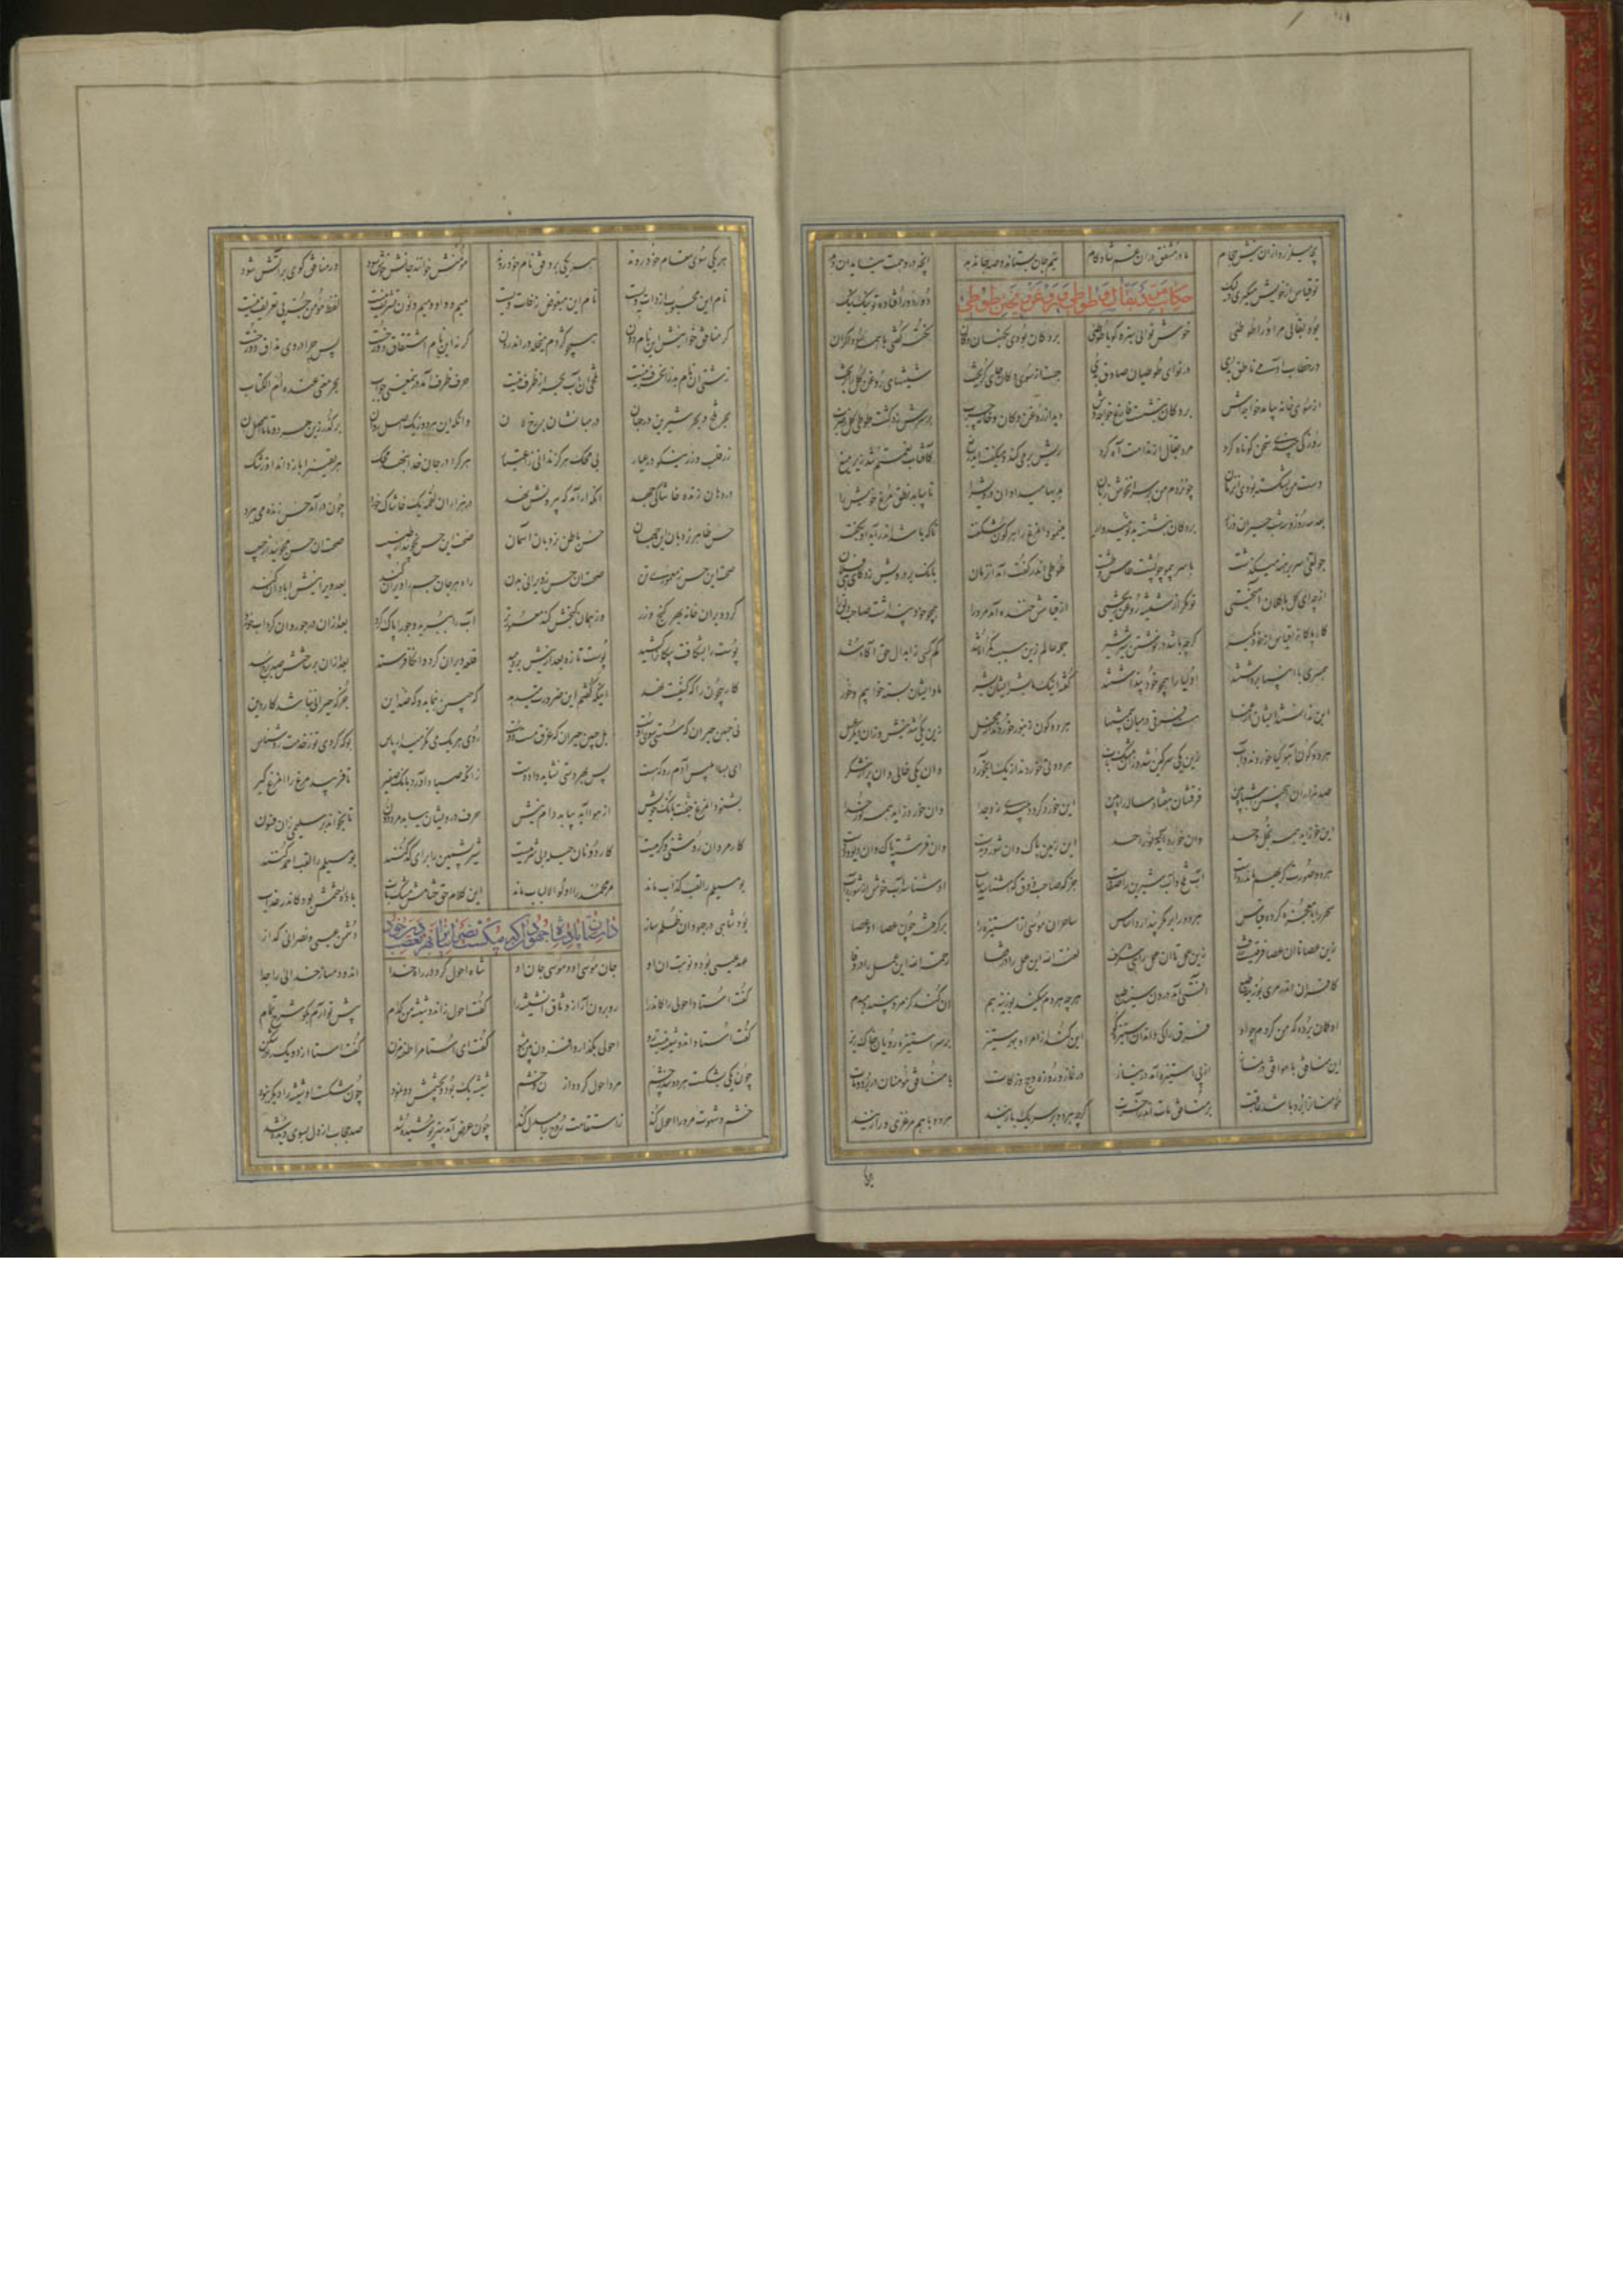 بچه میلرزد ازان نیش حجام مادر مشفق دران غم شادکام نیم جان بستاند و صد جان دهد آنچه در وهمت نیاید آن دهد
تو قیاس از خویش میگیری ولیک دور دور افتاده تو نیک نیک
حکایت مرد بقال و طوطی و روغن ریختن طوطی
بود بقالی مر او را طوطئی خوش نوائی سبزه گویا طوطئی بر دکان بودی نگهبان دکان نکته گفتی با همه سوداگران
در خطاب آدمی ناطق بدی در نوای طوطیان حاذق بدی جست از سوی دکان سوی گریخت شیشهای روغن گل را بریخت
از سوی خانه بیامد خواجه‌اش بر دکان بنشست فارغ خواجه‌وش دید پر روغن دکان و جامه چرب بر سرش زد گشت طوطی کل ز ضرب
روزکی چندی سخن کوتاه کرد مرد بقال از ندامت آه کرد ریش بر می‌کند و میگفت ای دریغ کافتاب نعمتم شد زیر میغ
دست من بشکسته بودی آن زمان چون زدم من بر سر آن خوش زبان هدیها میداد هر درویش را تا بیابد نطق مرغ خویش را
بعد سه روز و سه شب حیران و زار بر دکان بنشسته بد نومیدوار مینمود آن مرغ را هر گون شگفت تا که باشد اندر آید او بگفت
جولقی سر برهنه میگذشت با سر بی‌مو چو پشت طاس و طشت طوطی اندر گفت آمد آن زمان بانک بر درویش زد
از چه ای کل با کلان آمیختی تو مگر از شیشه روغن ریختی از قیاسش خنده آمد مر ورا همچو خود پنداشت صاحب دلق را
کار پاکان را قیاس از خود مگیر گرچه باشد در نوشتن شیر شیر جمله عالم زین سبب گمراه شد کم کسی ز ابدال حق آگاه شد
همسری با انبیا برداشتند اولیا را همچو خود پنداشتند گفته اینک ما بشر ایشان بشر ما و ایشان بسته خوابیم و خور
این ندانستند ایشان از عمی هست فرقی درمیان بی‌منتها هر دو گون زنبور خوردند از محل زین یکی شد نیش و زان دیگر عسل
هر دو گون آهو گیا خوردند و آب زین یکی سرگین شد و زان مشک ناب هر دو نی خوردند از یک آبخورد وان یکی خالی و آن پر از شکر
صد هزاران این چنین اشباه بین فرقشان هفتاد ساله راه بین این خورد گردد پلیدی زو جدا وان خورد زاید همه نور خدا
این خورد زاید همه بخل و حسد وان خورد آید همه نور احد این زمین پاک و آن شورست و بد وان فرشته پاک و آن دیوست و دد
هر دو صورت گر بهم ماند رواست آب تلخ و آب شیرین را صفاست جز که صاحب ذوق که شناسد بیاب او شناسد آب خوش از شوره آب
سحر را با معجزه کرده قیاس هر دو را بر مکر پندارد اساس ساحران موسی از استیزه را برگرفته چون عصای او عصا
زین عصا تا آن عصا فرقیست ژرف زین عمل تا آن عمل راهی شگرف لعنة الله این عمل را در قفا رحمة الله این عمل را در وفا
کافران اندر مری بوزینه طبع آفتی آمد درون سینه طبع هر چه مردم میکند بوزینه هم آن کند کز مرد بیند دم بدم
او گمان برده که من کردم چو او فرق را کی داند آن استیزه‌جو این کند از امر او بهر ستیز بر سر استیزه رویان خاک ریز
این منافق با موافق در نماز از پی استیزه آید نی نیاز در نماز و روزه و حج و زکات با منافق مؤمنان در برد و مات
مؤمنان را برد باشد عاقبت بر منافق مات اندر آخرت گرچه هر دو بر سر یک بازیند هر دو با هم مروزی و رازیند
هر یکی
هر یکی سوی مقام خود رود هر یکی بر وفق نام خود رود مؤمنش خوانند جانش خوش شود ور منافق گوئی پر آتش شود
نام این محبوب از ذات ویست نام این مبغوض ز آفات ویست میم و واو و میم و نون تشریف نیست لفظ مؤمن جز پی تعریف نیست
گر منافق خوانیش این نام دون همچو کژدم میخلد در اندرون گرنه این نام اشتقاق دوزخست پس چرا در وی مذاق دوزخست
زشتی آن نام بد از حرف نیست تلخی آن آب بحر از ظرف نیست حرف ظرف آمد درو معنی چو آب بحر معنی عنده ام الکتاب
بحر تلخ و بحر شیرین در جهان درمیانشان برزخ لا وانگه این هر دو ز یک اصلی روان برگذر زین هر دو رو تا اصل آن
زر قلب و زر نیکو در عیار بی محک هرگز ندانی ز اعتبار هر کرا در جان خدا بنهد محک هر یقین را باز داند او ز شک
در دهان زنده خاشاکی جهد آنگه آرامد که بیرونش نهد در هزاران لقمه یک خاشاک خرد چون درآمد حس زنده پی ببرد
حس ظاهر نردبان این جهان حس باطن نردبان آسمان صحت این حس بجوئید از طبیب صحت آن حس بجوئید از حبیب
صحت این حس ز معموری تن صحت آن حس ز ویرانی بدن راه جان هر جسم را ویران کند بعد ویرانیش آبادان کند
کرد ویران خانه بهر گنج و زر وز همان گنجش کند معمورتر آب را ببرید و جو را پاک کرد بعد ازان در جو روان کرد آب خورد
پوست را بشکافت پیکان را کشید پوست تازه بعد ازانش بردمید قلعه ویران کرد و از کافر ستد بعد ازان برساختش صد برج و سد
کار بیچون را که کیفیت نهد اینکه گفتم این ضرورت میدهد گه چنین بنماید و گه ضد این جز که حیرانی نباشد کار دین
نی چنین حیران که پشتش سوی اوست بل چنین حیران که غرق مست دوست روی هر یک می‌نگر میدار پاس بوکه گردی تو ز خدمت روشناس
ای بسا ابلیس آدم روی هست پس بهر دستی نشاید داد دست زانکه صیاد آورد بانگ صفیر تا فریبد مرغ را آن مرغ گیر
بشنود آن مرغ بانگ جنس خویش از هوا آید بیابد دام و نیش حرف درویشان بدزدد مرد دون تا بخواند بر سلیمی زان فسون
کار مردان روشنی و گرمیست کار دونان حیله و بی‌شرمیست شیر پشمین از برای گد کنند بومسیلم را لقب احمد کنند
بومسیلم را لقب کذاب ماند مر محمد را اولوالالباب ماند آن شراب حق ختامش مشک ناب باده را ختمش بود گند و عذاب
داستان آن پادشاه جهود که میکشت نصرانیان را از بهر تعصب دین خود
بود شاهی در جهودان ظلم ساز دشمن عیسی و نصرانی گداز
عهد عیسی بود و نوبت آن او جان موسی او و موسی جان او شاه احول کرد در راه خدا آن دو دمساز خدائی را جدا
گفت استاد احولی را کاندرآ رو برون آر از وثاق آن شیشه را گفت احول زان دو شیشه من کدام پیش تو آرم بکن شرح تمام
گفت استاد آن دو شیشه نیست رو احولی بگذار و افزون بین مشو گفت ای استا مرا طعنه مزن گفت استا زان دو یک را برشکن
چون یکی بشکست هر دو شد ز چشم مرد احول گردد از و خشم شیشه یک بود و بچشمش دو نمود چون شکست او شیشه را دیگر نبود
خشم و شهوت مرد را احول کند ز استقامت روح را مبدل کند چون غرض آمد هنر پوشیده شد صد حجاب از دل بسوی دیده شد